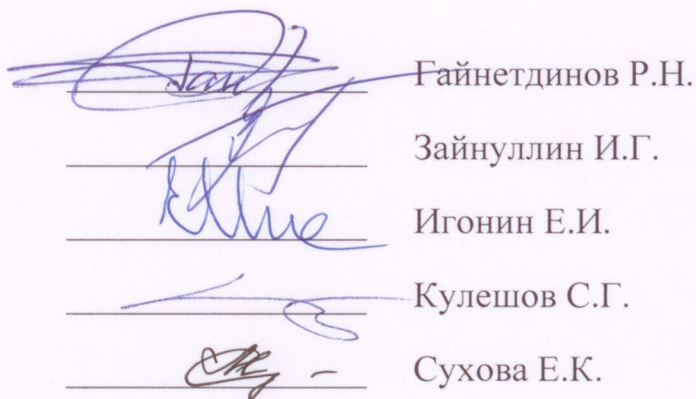 Гайнетдинов Р.Н.
Зайнуллин И.Г.
Игонин Е.И.
Кулешов С.Г.
Сухова Е.К.